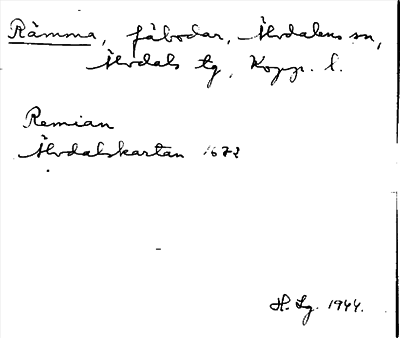 Rämma, fäbodar, Älvdalens sn,
Älvdals tg, Kopp. l.
Remian
Älvdalskartan 1672
H. Lg. 1944.